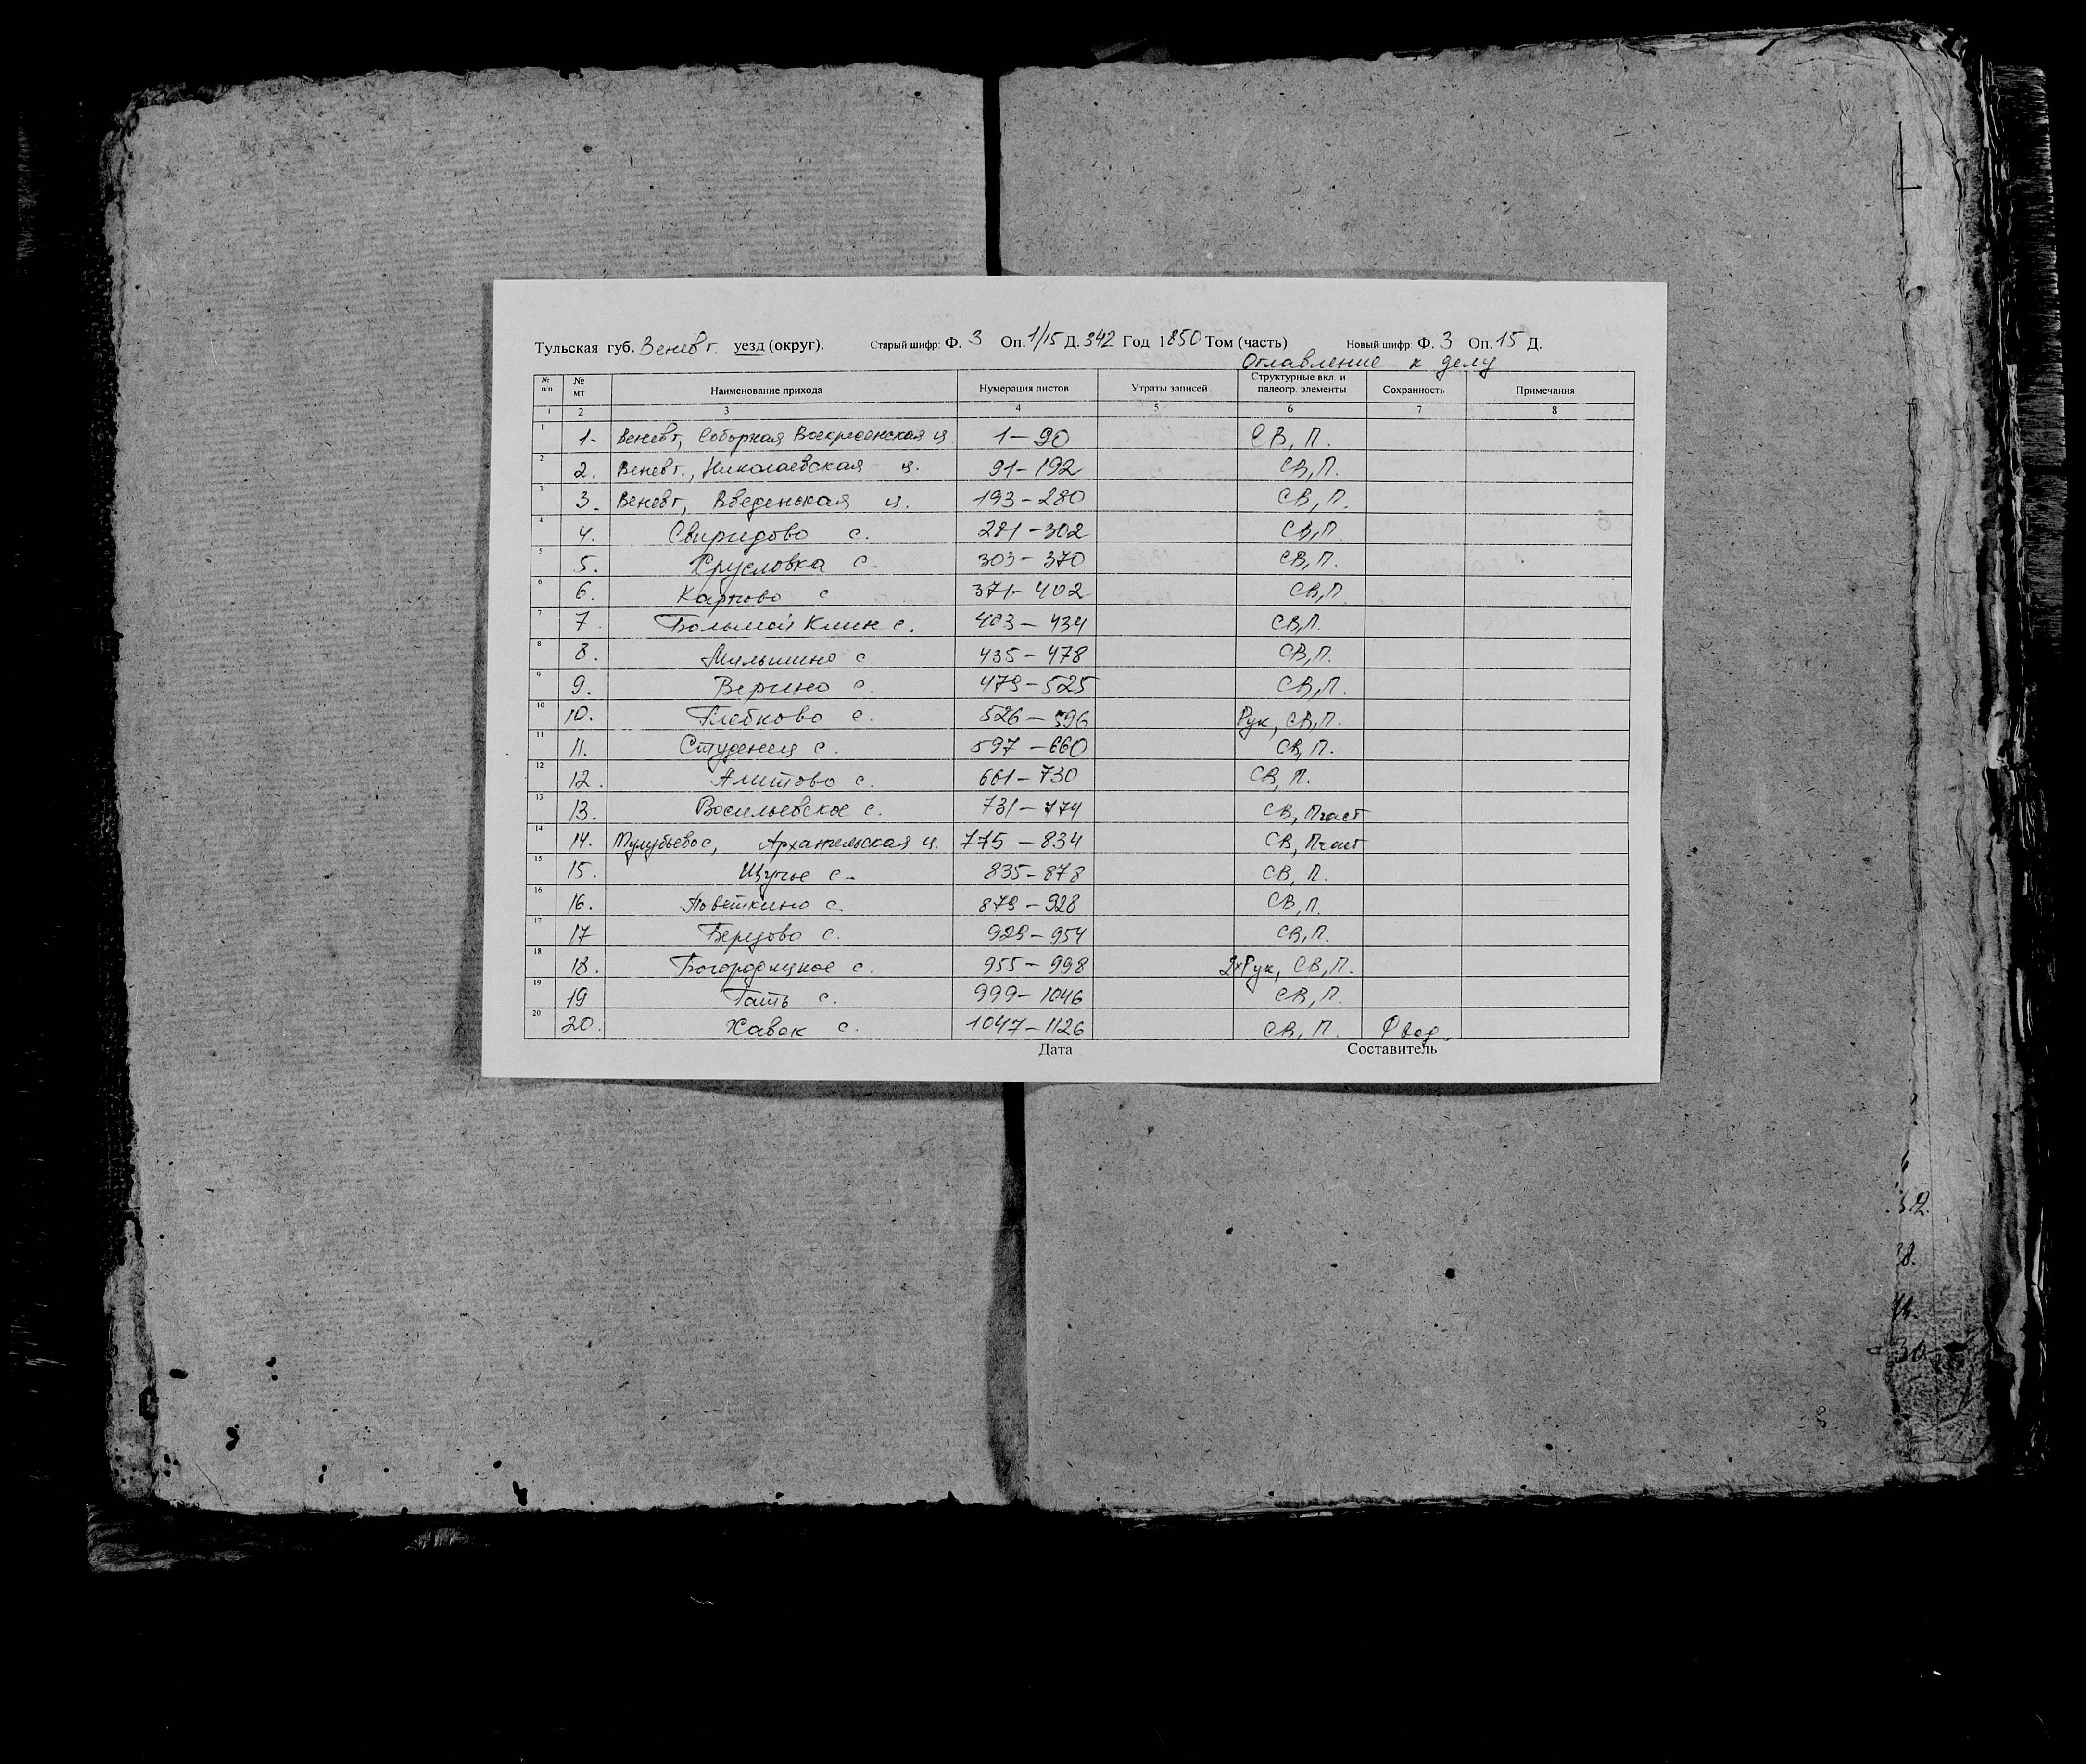 Тульская губ. Венев г. уезд (округ). Старый шифр: Ф. 3 Оп. 1/15 Д. 342 Год 1850 Том (часть) Новый шифр: Ф. 3 Оп. 15 Д.
Оглавление к делу
№ п/п № мт Наименование прихода Нумерация листов Утраты записей Структурные вкл. и палеогр. элементы Сохранность Примечания
1 2 3 4 5 6 7 8
1 1. Венев г, Соборная Воскресенская ц 1-90 СВ, П.
2 2. Венев г., Николаевская ц. 91-192 СВ, П.
3 3. Венев г, Введенская ц. 193-280 СВ, П.
4 4. Свиридово с. 281-302 СВ, П
5 5. Хрусловка с. 303-370 СВ, П.
6 6. Карпово с 371-402 СВ, П
7 7. Большой Клин с. 403-434 СВ, П.
8 8. Мильшино с 435-478 СВ, П.
9 9. Веркино с. 479-525 СВ, П.
10 10. Глебково с. 526-596 Рук, СВ, П.
11 11. Студенец с. 597-660 СВ, П.
12 12. Алитово с. 661-730 СВ, П.
13 13. Васильевское с. 731-774 СВ, Пчаст
14 14. Мулубьево с, Архангельская ц. 775-834 СВ, Пчаст
15 15. Щучье с. 835-878 СВ, П.
16 16. Поветкино с. 879-928 СВ, П.
17 17 Березово с. 929-954 СВ, П.
18 18. Богородицкое с. 955-998 2×Рук, СВ, П.
19 19 Гать с. 999-1046 СВ, П.
20 20. Хавок с. 1047-1126 СВ, П. Ф вод.
Дата Составитель